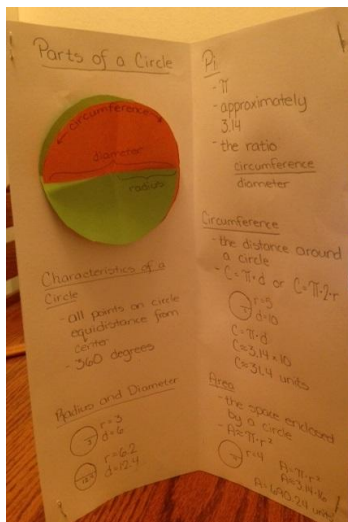 Parts of a Circle
circumference
diameter
radius
Characteristics of a
Circle
- all points on circle
equidistance from
center
- 360 degrees
Radius and Diameter
3
r=3
d=6
r=6.2
d=12.4
Pi
- π
- approximately
3.14
- the ratio
circumference
diameter
Circumference
- the distance around
a circle
- C=π·d or C=π·2·r
r=5
d=10
C=π·d
C≈3.14×10
C≈31.4 units
Area
- the space enclosed
by a circle
- A=π·r²
r=4
A=π·r²